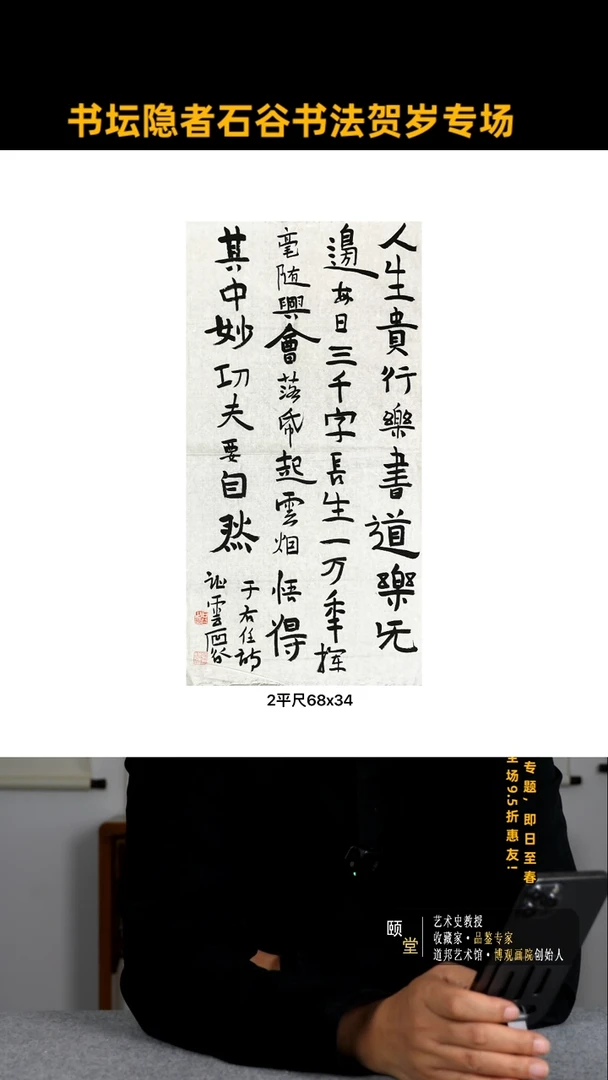 书坛隐者石谷书法贺岁专场
人生貴行樂書道樂无
邊每日三千字長生一万年揮
毫随興會落帋起雲烟悟得
其中妙功夫要自然
于右任詩
雲石谷
2平尺68x34
专题,即日至春
全场9.5折惠友!
颐堂
艺术史教授
收藏家·品鉴专家
道邦艺术馆·博观画院创始人